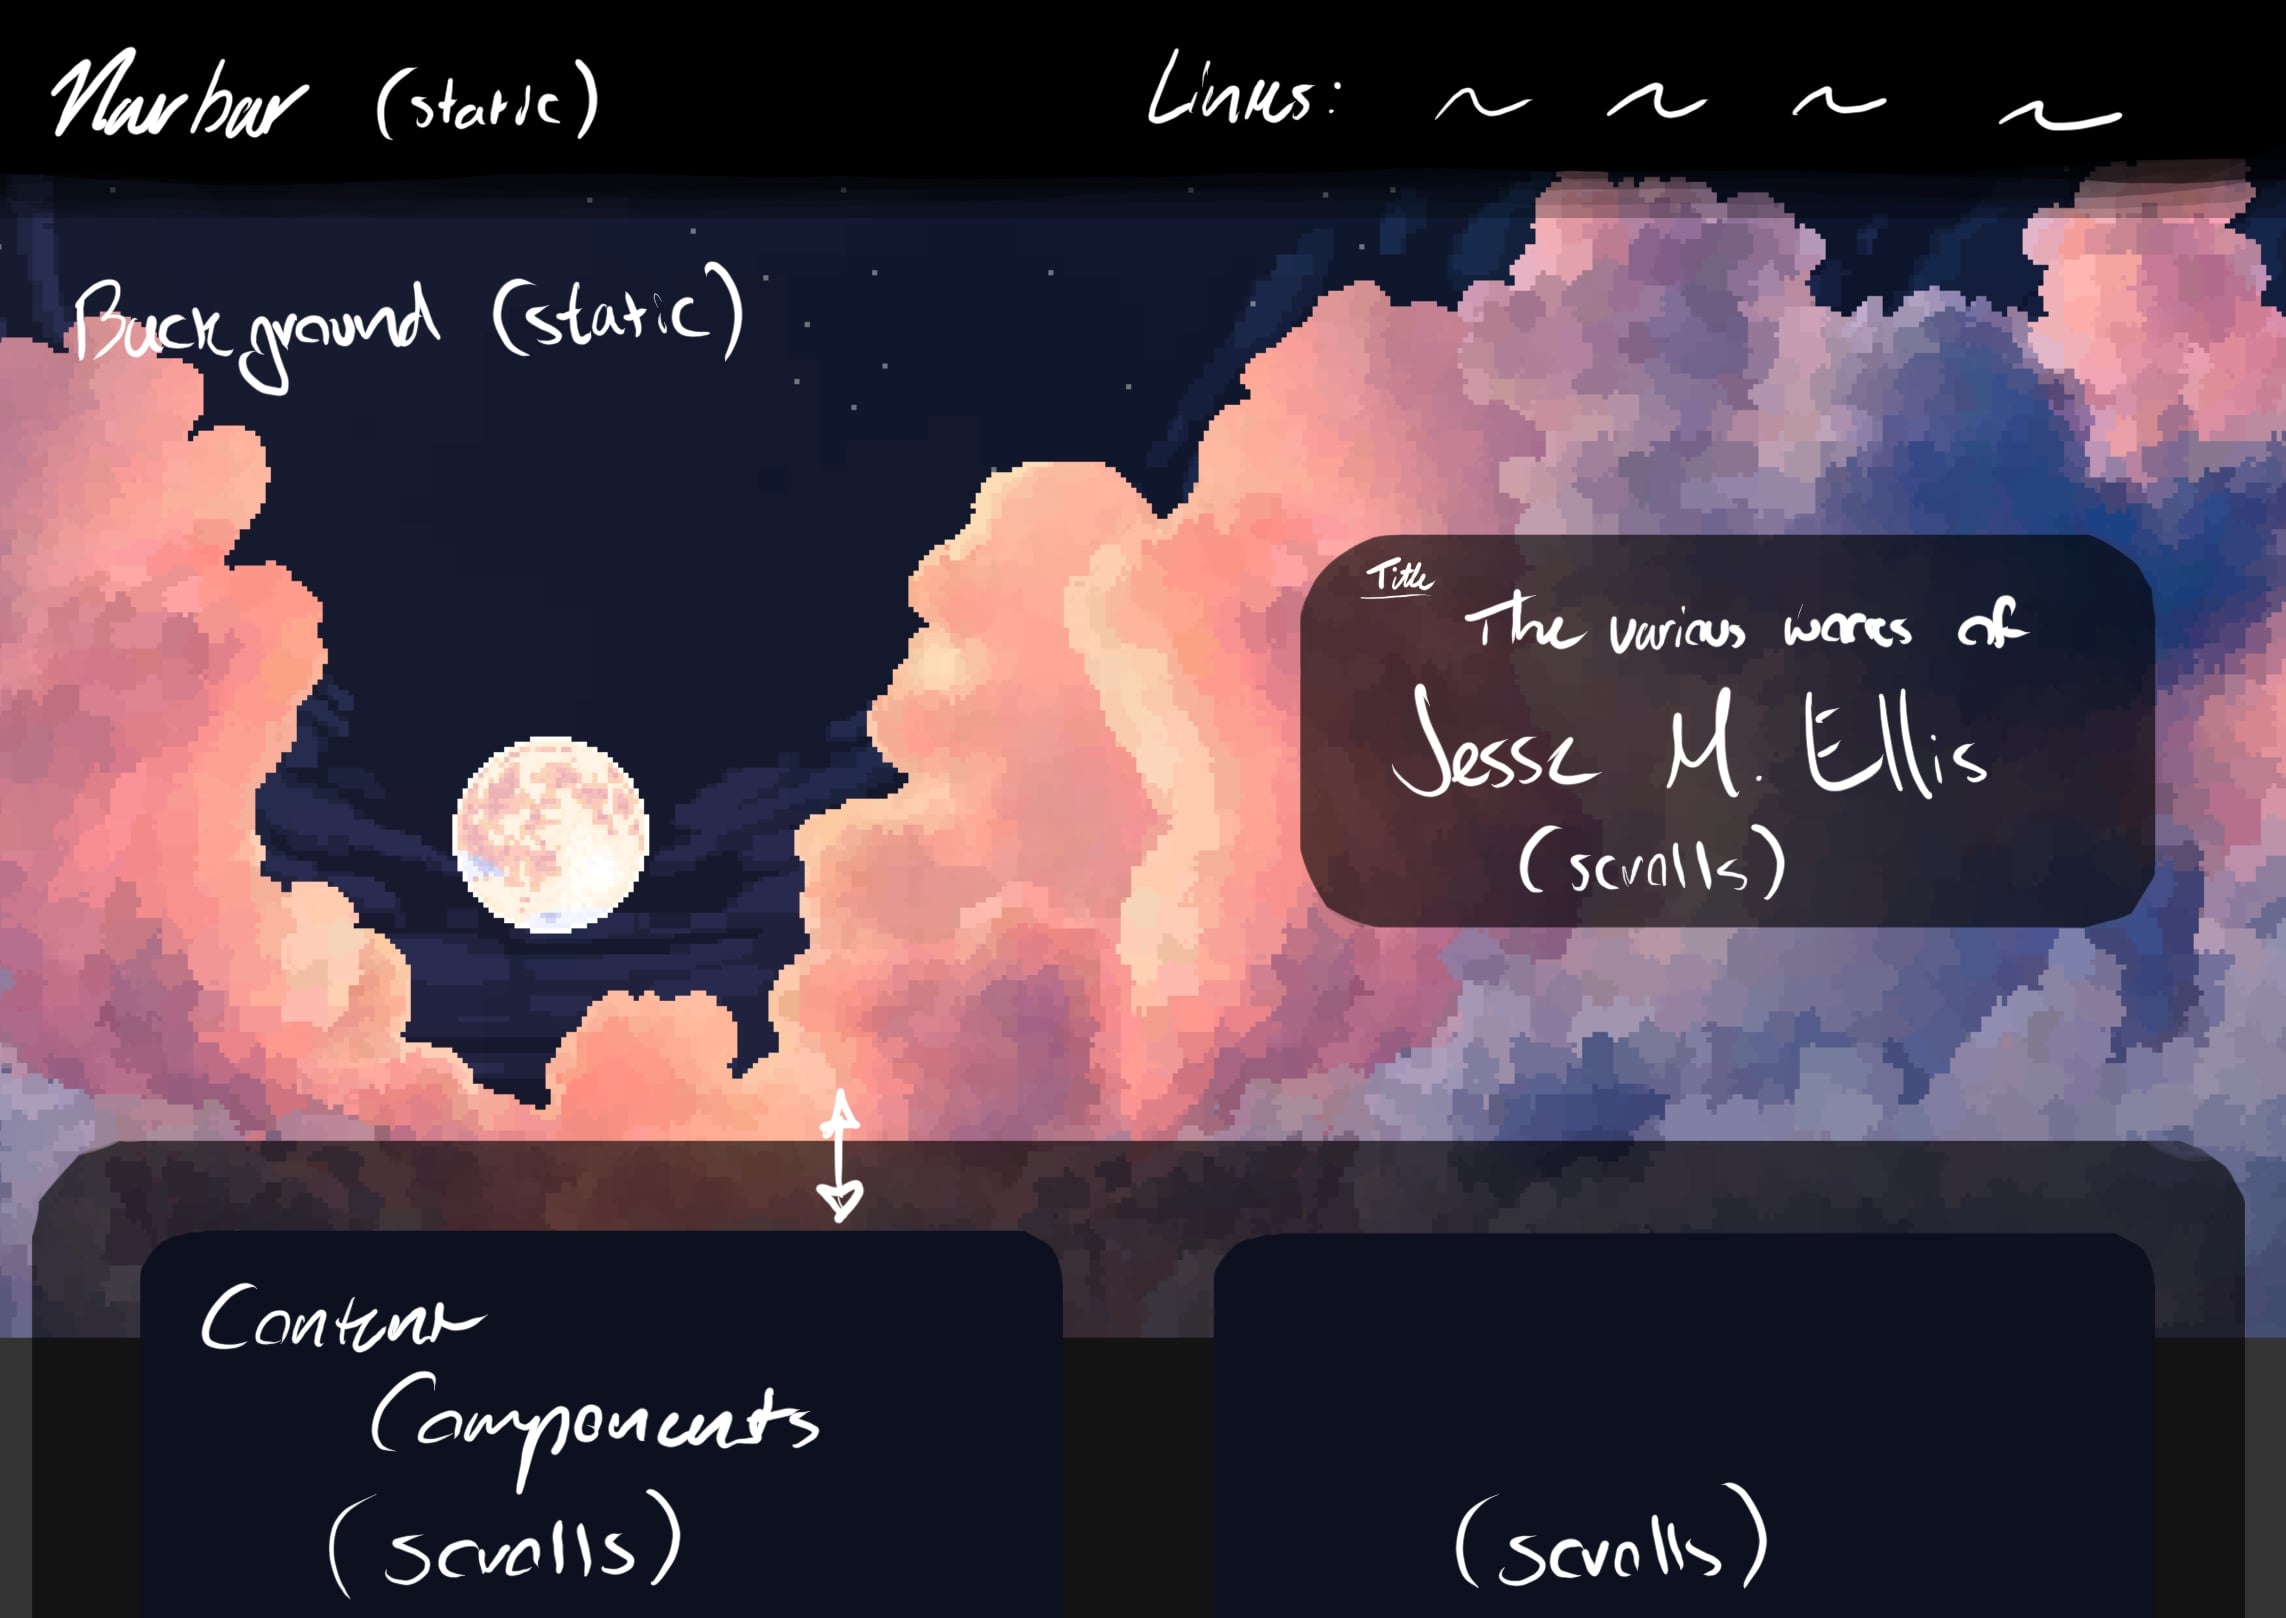 Navbar (static)
Links:
Background (static)
Title
The various works of
Jesse M. Ellis
(scrolls)
Content
Components
(scrolls)
(scrolls)